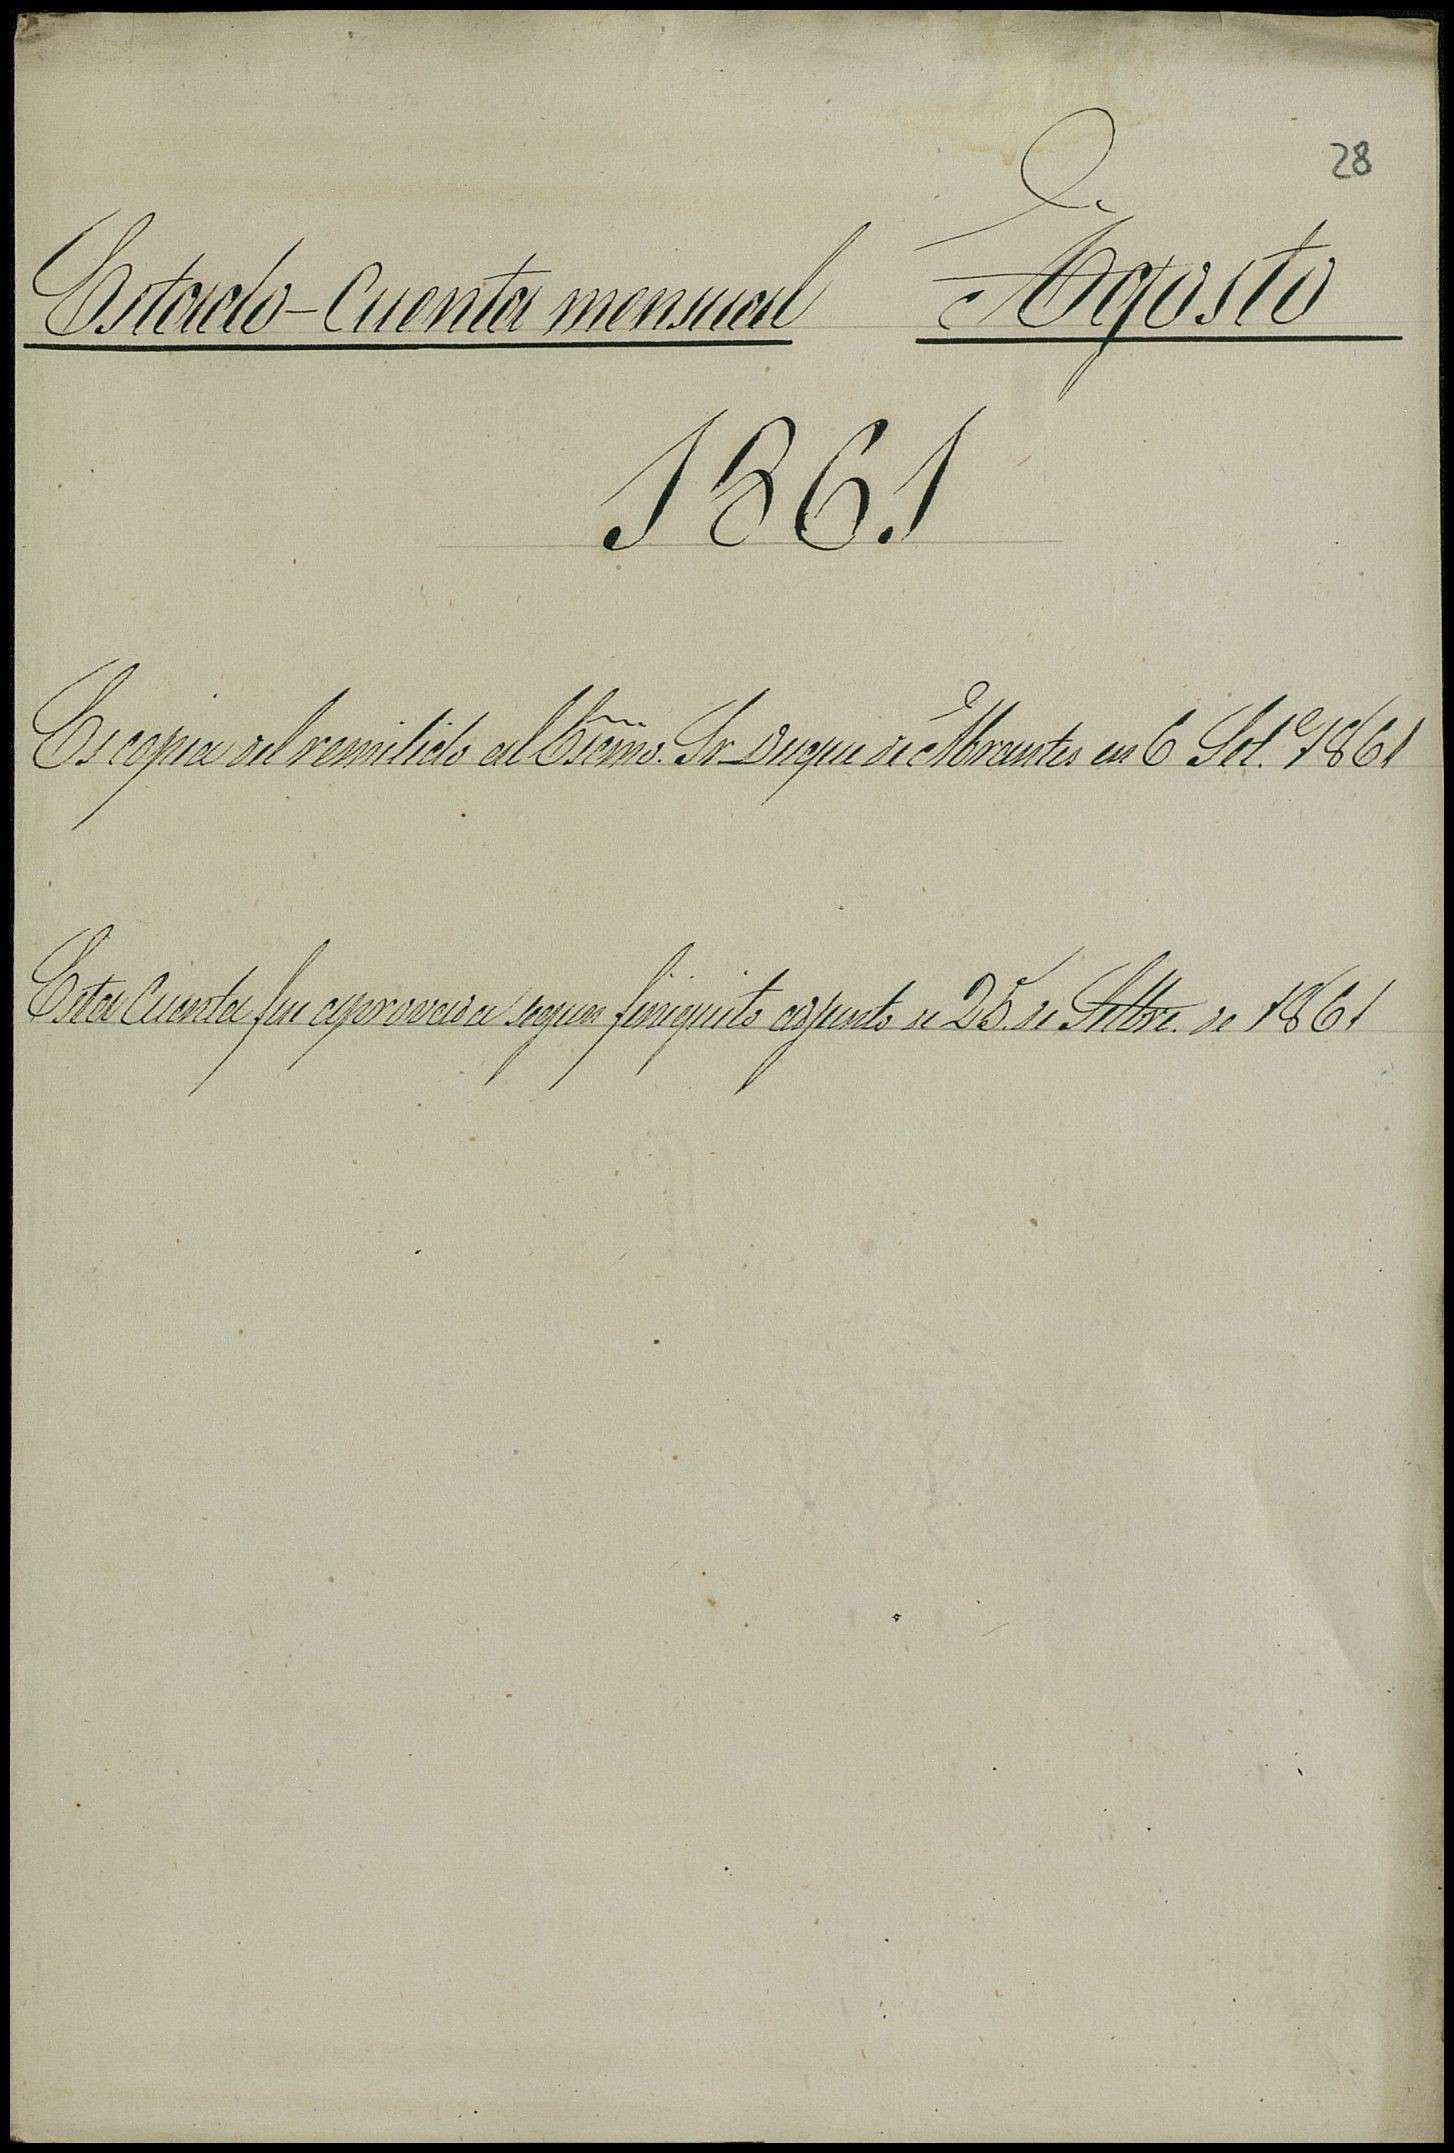 28
Estado-Cuenta mensual Agosto
1861
Es copia del remitido al Escmo. Sr Duque de Abrantes en 6 Set.e 1861
Esta Cuenta fue aprovada segun finiquito adjunto de 25 de Setbre. de 1861